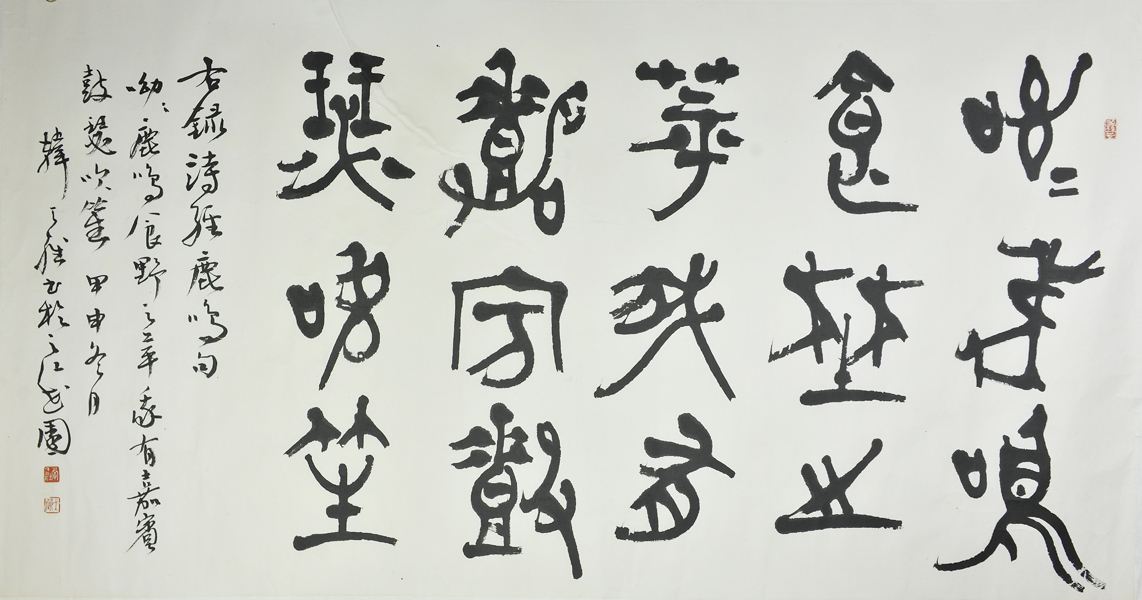 呦〻鹿鳴
食埜之
苹我有
嘉賓鼓
瑟吹笙
右錄詩經鹿鳴句
呦〻鹿鳴食野之苹我有嘉賓
鼓瑟吹笙 甲申冬月
韓天雍書於之江園